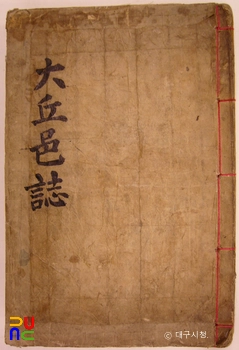 大丘邑誌
© 대구시청.